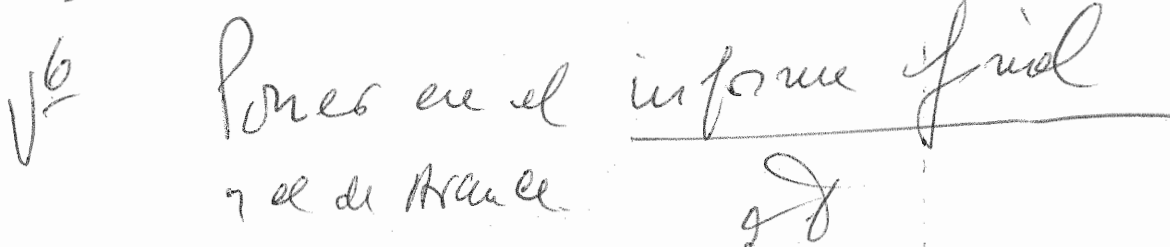 Vº Poner en el informe final
y el de Avance